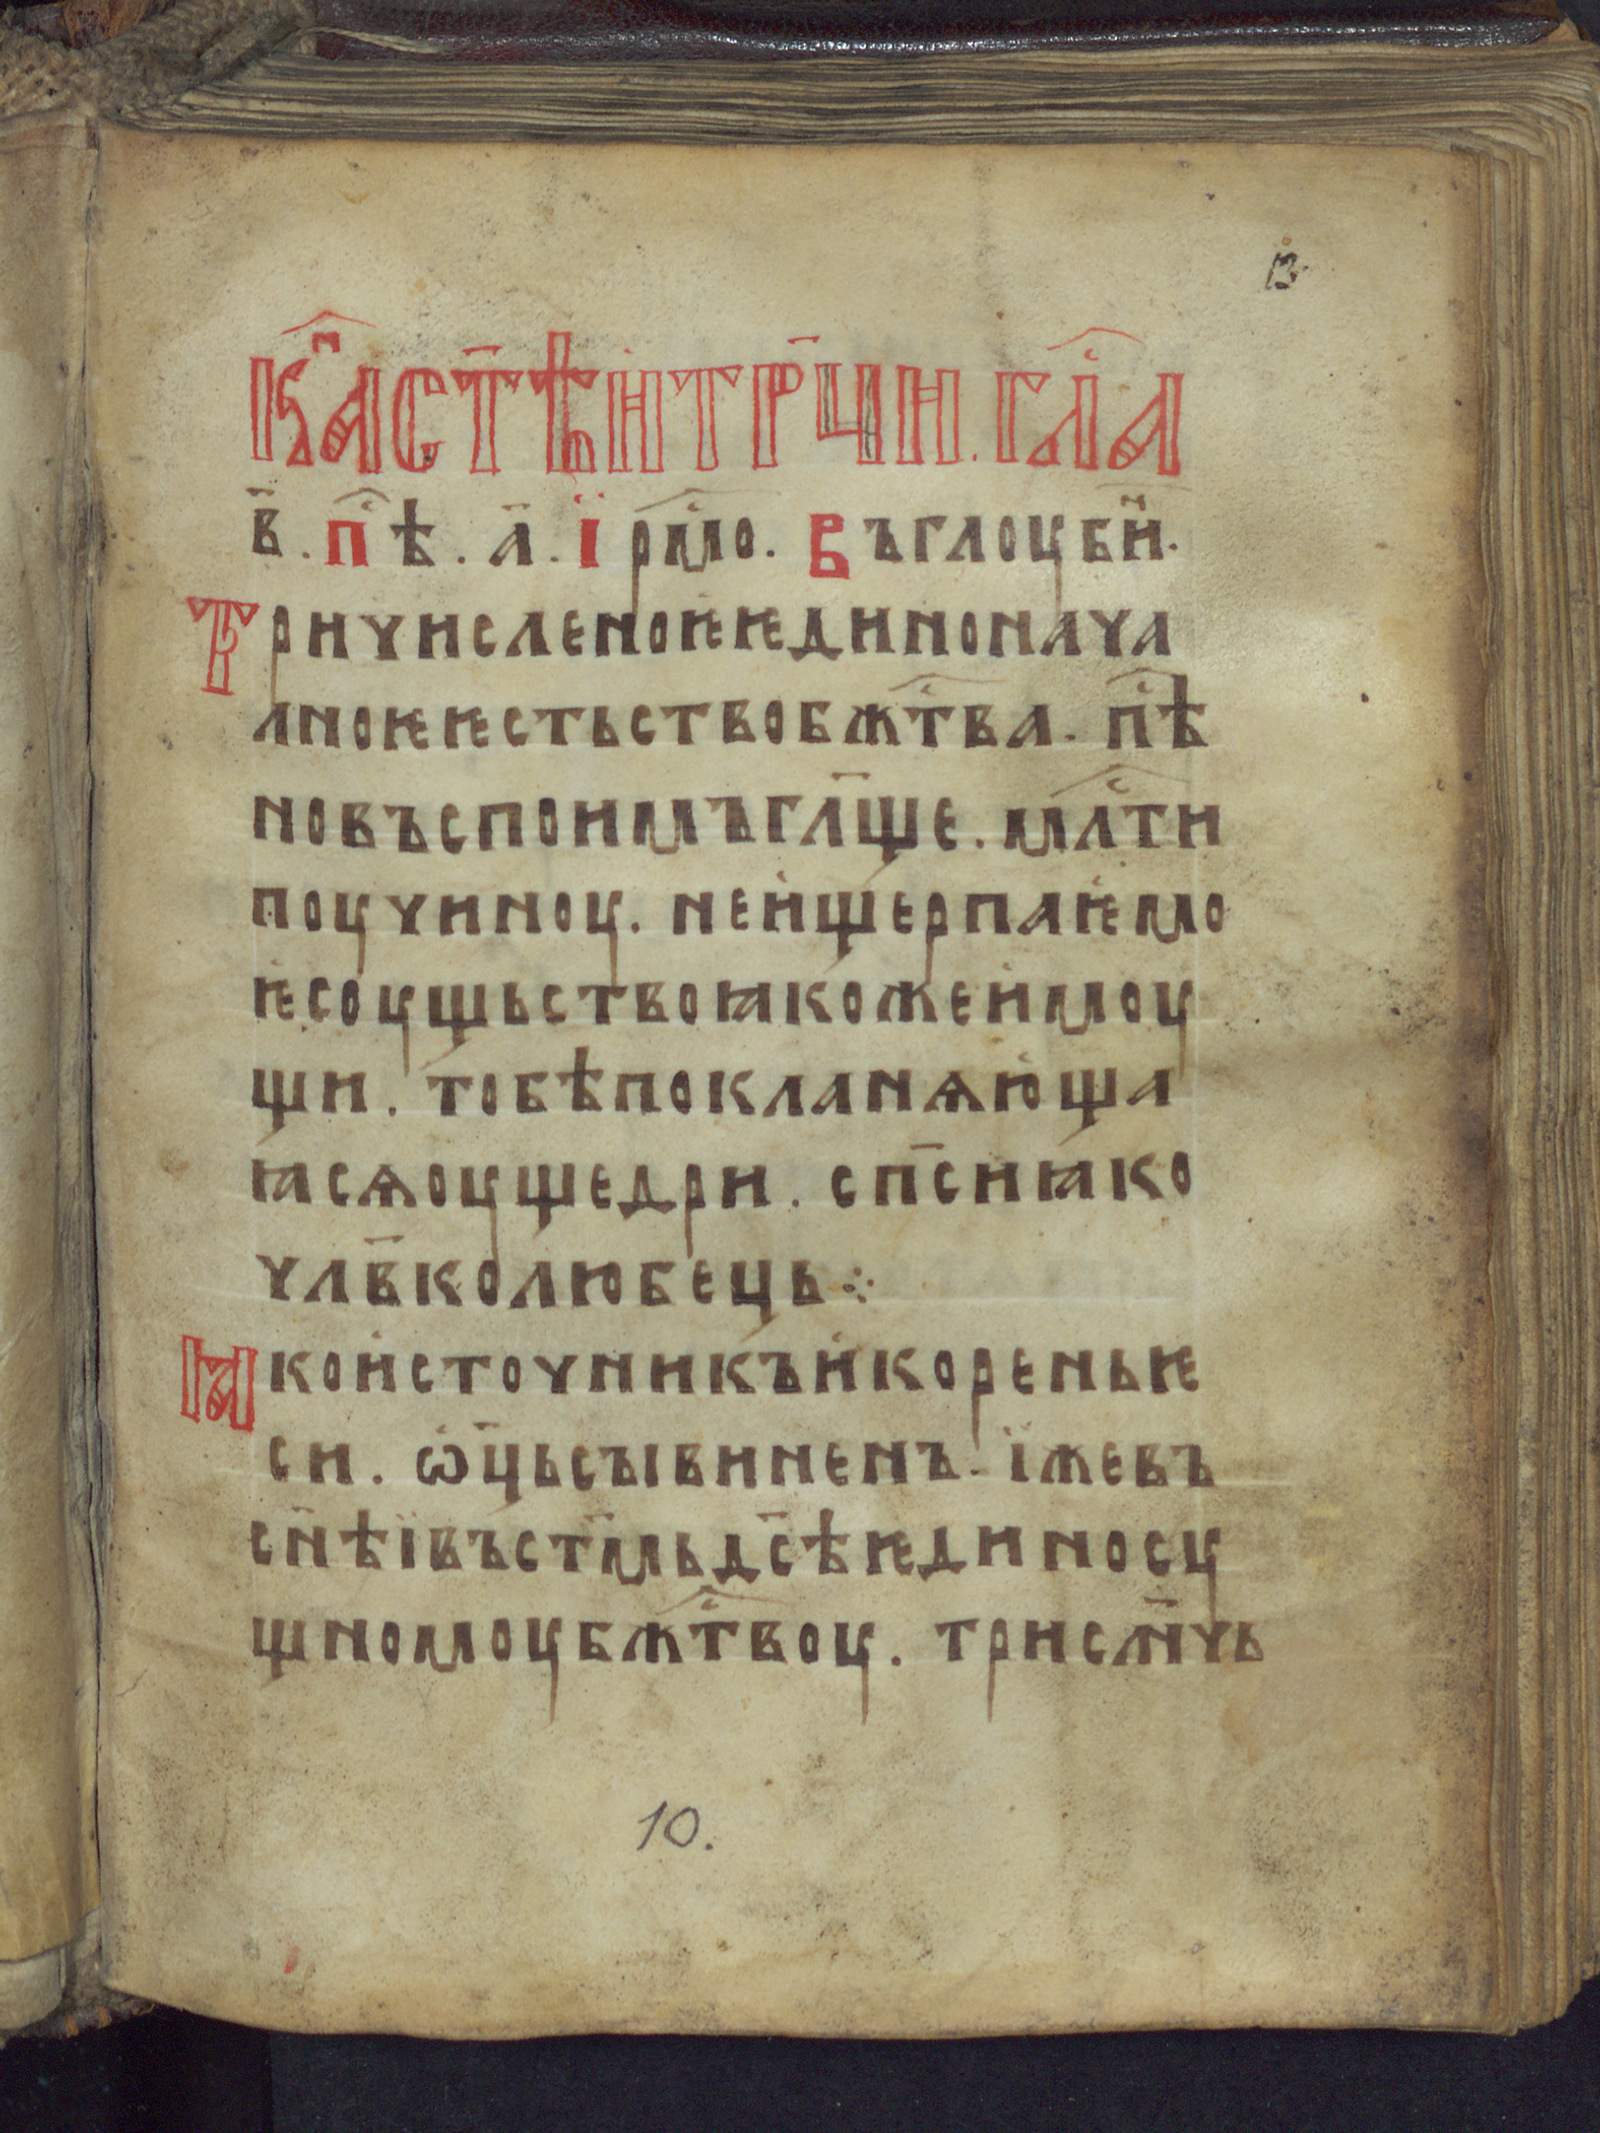 13
Кⷩ҇а ст҃ѣи трⷪ҇ци. глⷭ҇а
в҃. пⷭ҇ѣ. а҃. ї рⷭ҇мо. Въ глоуби҃.
Тричисленоѥ ѥдиноначѧ
лноѥ ѥстьство бжⷭ҇тва. пⷭ҇ѣ
новъспоимъ гл҃ще. млⷭ҇ти
поучиноу. неищерпаѥмо
ѥ соущьство ꙗкоже имоу
щи. тобѣ покланѧюща
ꙗсѧ оущедри. сп҃си ꙗко
чл҃вколюбець ⁘
Ꙗко источникъ и корень ѥ
си. ѡц҃ь съı виненъ. їже въ
сн҃ѣ ї въ ст҃мь дс҃ѣ ѥдиносу
щномоу бжⷭ҇твоу. трислн҃чь
10.